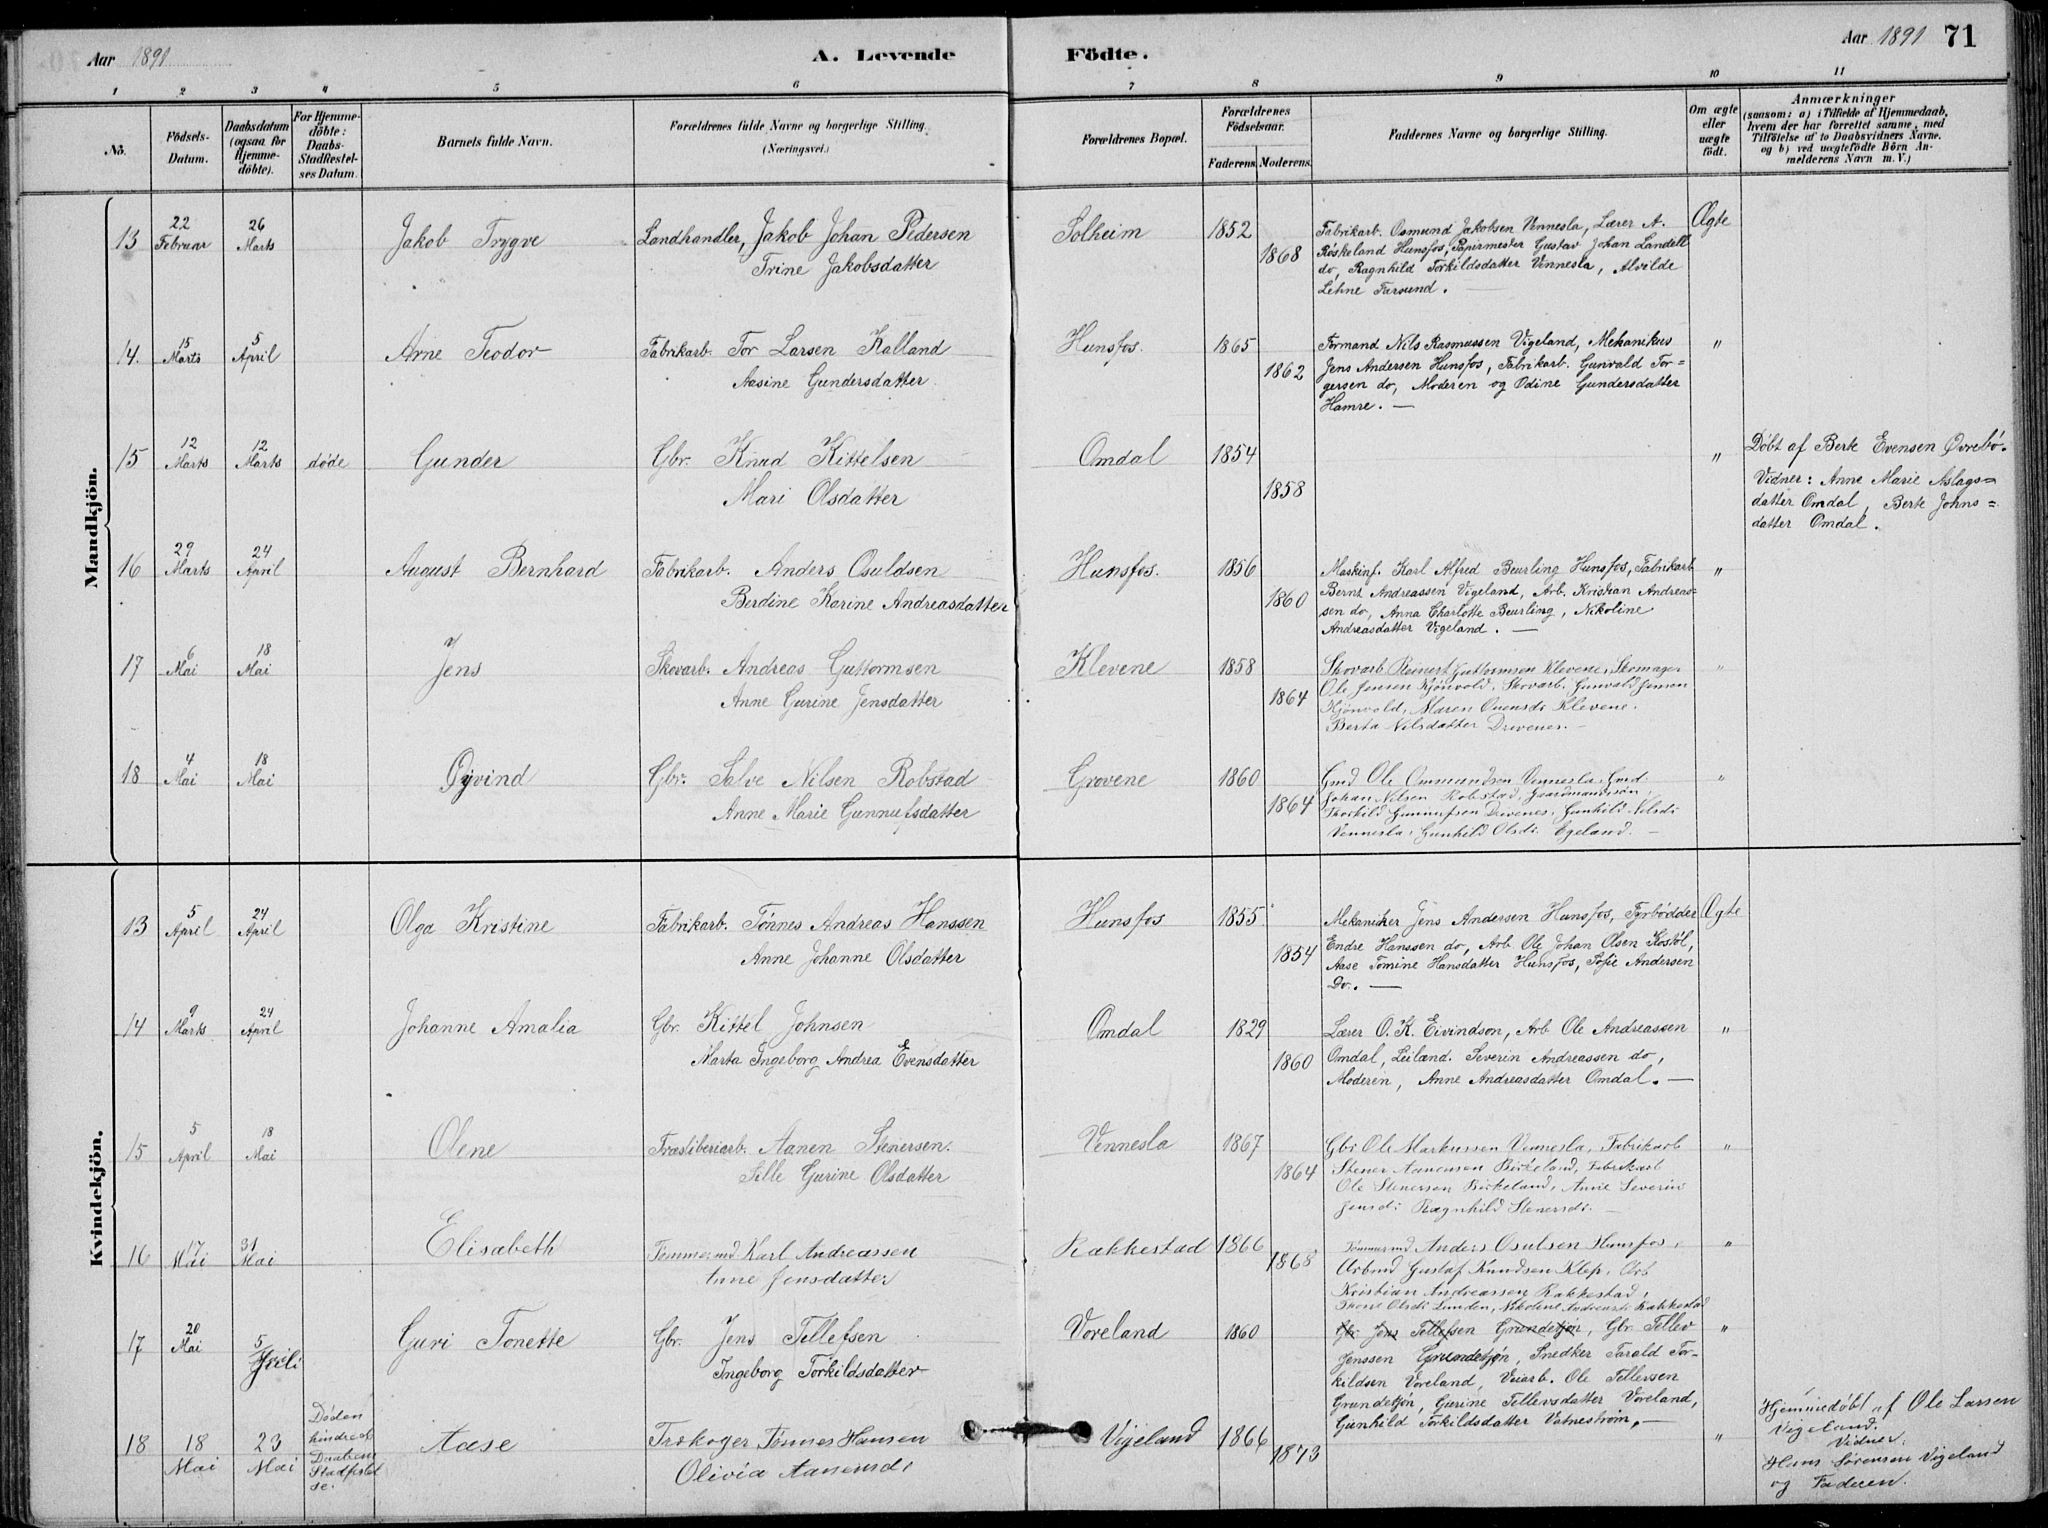 Aar 1891
A. Levende
Födte.
Aar 1891 71
1 2 3 4 5 6 7 8 9 10 11
No.
Födsels-
Datum.
Daabsdatum
(ogsaa for
Hjemme-
döbte).
For Hjemme-
döbte:
Daabs-
Stadfæstel-
ses Datum.
Barnets fulde Navn.
Forældrenes fulde Navne og borgerlige Stilling.
(Næringsvei.)
Forældrenes Bopæl.
Forældrenes
Födselsaar.
Faderens. Moderens.
Faddernes Navne og borgerlige Stilling.
Om ægte
eller
uægte
födt.
Anmærkninger
(saasom: a) i Tilfælde af Hjemmedaab,
hvem der har forrettet samme, med
Tilföielse af to Daabsvidners Navne.
og b) ved uægtefödte Börn An-
melderens Navn m. V.)
Mandkjön.
13
22
Februar
26
Marts
Jakob Trygve
Landhandler, Jakob Johan Pedersen
Trine Jakobsdatter
Solheim
1852
1868
Fabrikarb. Osmund Jakobsen Vennesla, Lærer A.
Røskeland Hunsfos, Papirmester Gustav Johan Landell
do, Ragnhild Torkildsdatter Vennesla, Alvilde
Lehne Farsund. —
Ægte
14.
15
Marts
5
April
Arne Teodor
Fabrikarb. Tor Larsen Kalland
Aasine Gundersdatter.
Hunsfos.
1865
1862
Formand Nils Rasmussen Vigeland, Mekanikus
Jens Andersen Hunsfos, Fabrikarb. Gunvald Tor=
gersen do, Moderen og Odine Gundersdatter
Hamre. —
"
15
12
Marts
12
Marts
døde
Gunder
Gbr. Knud Kittelsen
Mari Olsdatter
Omdal
1854
1858
"
Døbt af Berte Evensen Øvrebø.
Vidner: Anne Marie Aslags=
datter Omdal, Berte Johns=
datter Omdal.
16
29
Marts
24
April
August Bernhard
Fabrikarb. Anders Osuldsen
Berdine Karine Andreasdatter
Hunsfos.
1856
1860
Maskinf. Karl Alfred Beurling Hunsfos, Fabrikarb
Bernt Andreassen Vigeland, Arb. Kristian Andreas-
sen do, Anna Charlotte Beurling, Nikoline
Andreasdatter Vigeland. —
"
17
6
Mai
18
Mai
Jens
Skovarb. Andreas Guttormsen
Anne Gurine Jensdatter
Klevene
1858
1864
Skovarb Reinert Guttormsen Klevene, Skomager
Ole Jensen Kjönvold, Skovarb. Gunvald Jensen
Kjönvold, Maren Klevene.
Berta Nilsdatter Drevenes. —
"
18
4
Mai
18
Mai
Øyvind
Gbr. Salve Nilsen Robstad
Anne Marie Gunnufsdatter
Grovene
1860
1864
Gmd Ole Ommundsen Vennesla, Gmd
Johan Nilsen Robstad, Gaardmandssön,
Torkild Gunnufsen Drivenes, Gunhild Nilsd:
Vennesla, Gunhild Olsd: Egeland. —
"
Kvindekjön.
13
5
April
24
April
Olga Kristine
Fabrikarb. Tönnes Andreas Hanssen
Anne Johanne Olsdatter
Hunsfos
1855
1854
Mekaniker Jens Andersen Hunsfos, Fyrbødder
Endre Hanssen do, Arb. Ole Johan Olsen Kostöl,
Aase Tomine Hansdatter Hunsfos, Sofie Andersen
Do. —
Ægte
14
9
Marts
24
April
Johanne Amalia
Gbr. Kittel Johnsen
Marta Ingeborg Andrea Evensdatter
Omdal
1829
1860
Lærer O. K. Eivindson, Arb. Ole Andreassen
Omdal, Leilænd. Severin Andreassen do,
Moderen, Anne Andreasdatter Omdal. —
"
15
5
April
18
Mai
Olene
Træsliberiarb. Aanen Stenersen.
Sille Gurine Olsdatter
Vennesla
1867
1864
Gbr Ole Markussen Vennesla, Fabrikarb
Stener Aanensen Birkeland, Fabrikarb
Ole Stenersen Birkeland, Anne Severine
Jensd: Ragnhild Stenersd: —
"
16
17
Mai
31
Mai
Elisabeth
Tømmermd Karl Andreassen
Anne Jensdatter
Rakkestad
1866
1868
Tømmermd Anders Osulsen Hunsfos,
Arbmd Gustaf Knudsen Klep, Arb
Kristian Andreassen Rakkestad,
Olsd: Lunden, Nikoline Andreasd: Rakkestad
"
17
20
Mai
5
Juli
Guri Tonette
Gbr. Jens Tellefsen
Ingeborg Torkildsdatter
Voreland
1860
Gbr. Jens Tellefsen Grundetjön, Gbr. Tellev
Jenssen Grundetjön, Snedker Tarald Tor-
kildsen Voreland, Veiarb. Ole Tellefsen
Grundetjön, Gurine Tellevsdatter Voreland,
Gunhild Torkildsdatter Vatnestrøm, —
"
18
18
Mai
23
Mai
Døden
hindret
Daabens
Stadfæstel
se.
Aase
Træskoger Tønnes Hansen
Olivia Aanensd:
Vigeland
1866
1873
"
Hjemmedöbt af Ole Larsen
Vigeland.
Vidner:
Hans Sørensen Vigeland
og Faderen.